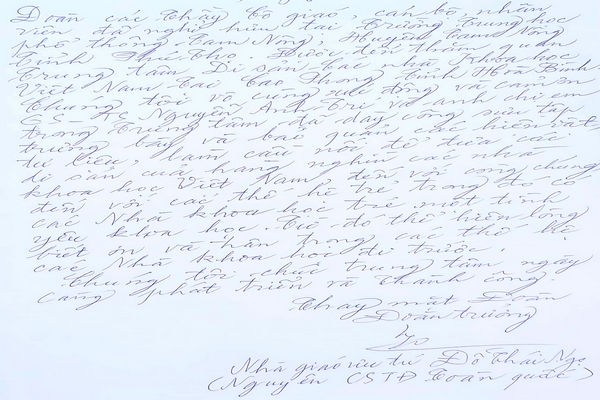 Đoàn các thầy cô giáo, cán bộ nhân
viên đã nghỉ hưu tại Trường Trung học
phổ thông Tam Nông, Huyện Tam Nông
tỉnh Phú Thọ. Được đến thăm quan
Trung tâm Di sản các nhà Khoa học
Việt Nam tại Cao Phong tỉnh Hòa Bình
Chúng tôi vô cùng xúc động và cảm ơn
GS-TS Nguyễn Anh Trí và anh chị em
trong Trung tâm đã dày công sưu tập
trưng bày và bảo quản các hiện vật,
tư liệu, làm cầu nối để đưa các
di sản của hàng nghìn các nhà
khoa học Việt Nam, đến với công chúng
đến với các thế hệ trẻ trong đó có
các Nhà khoa học trẻ một tình
yêu khoa học. Từ đó thể hiện lòng
biết ơn và trân trọng các thế hệ
các Nhà khoa học đi trước.
Chúng tôi chúc trung tâm ngày
càng phát triển và thành công.
Thay mặt Đoàn
Đoàn trưởng
Nhà giáo ưu tú Đỗ Thái Ngọ
(Nguyên CSTĐ toàn quốc)